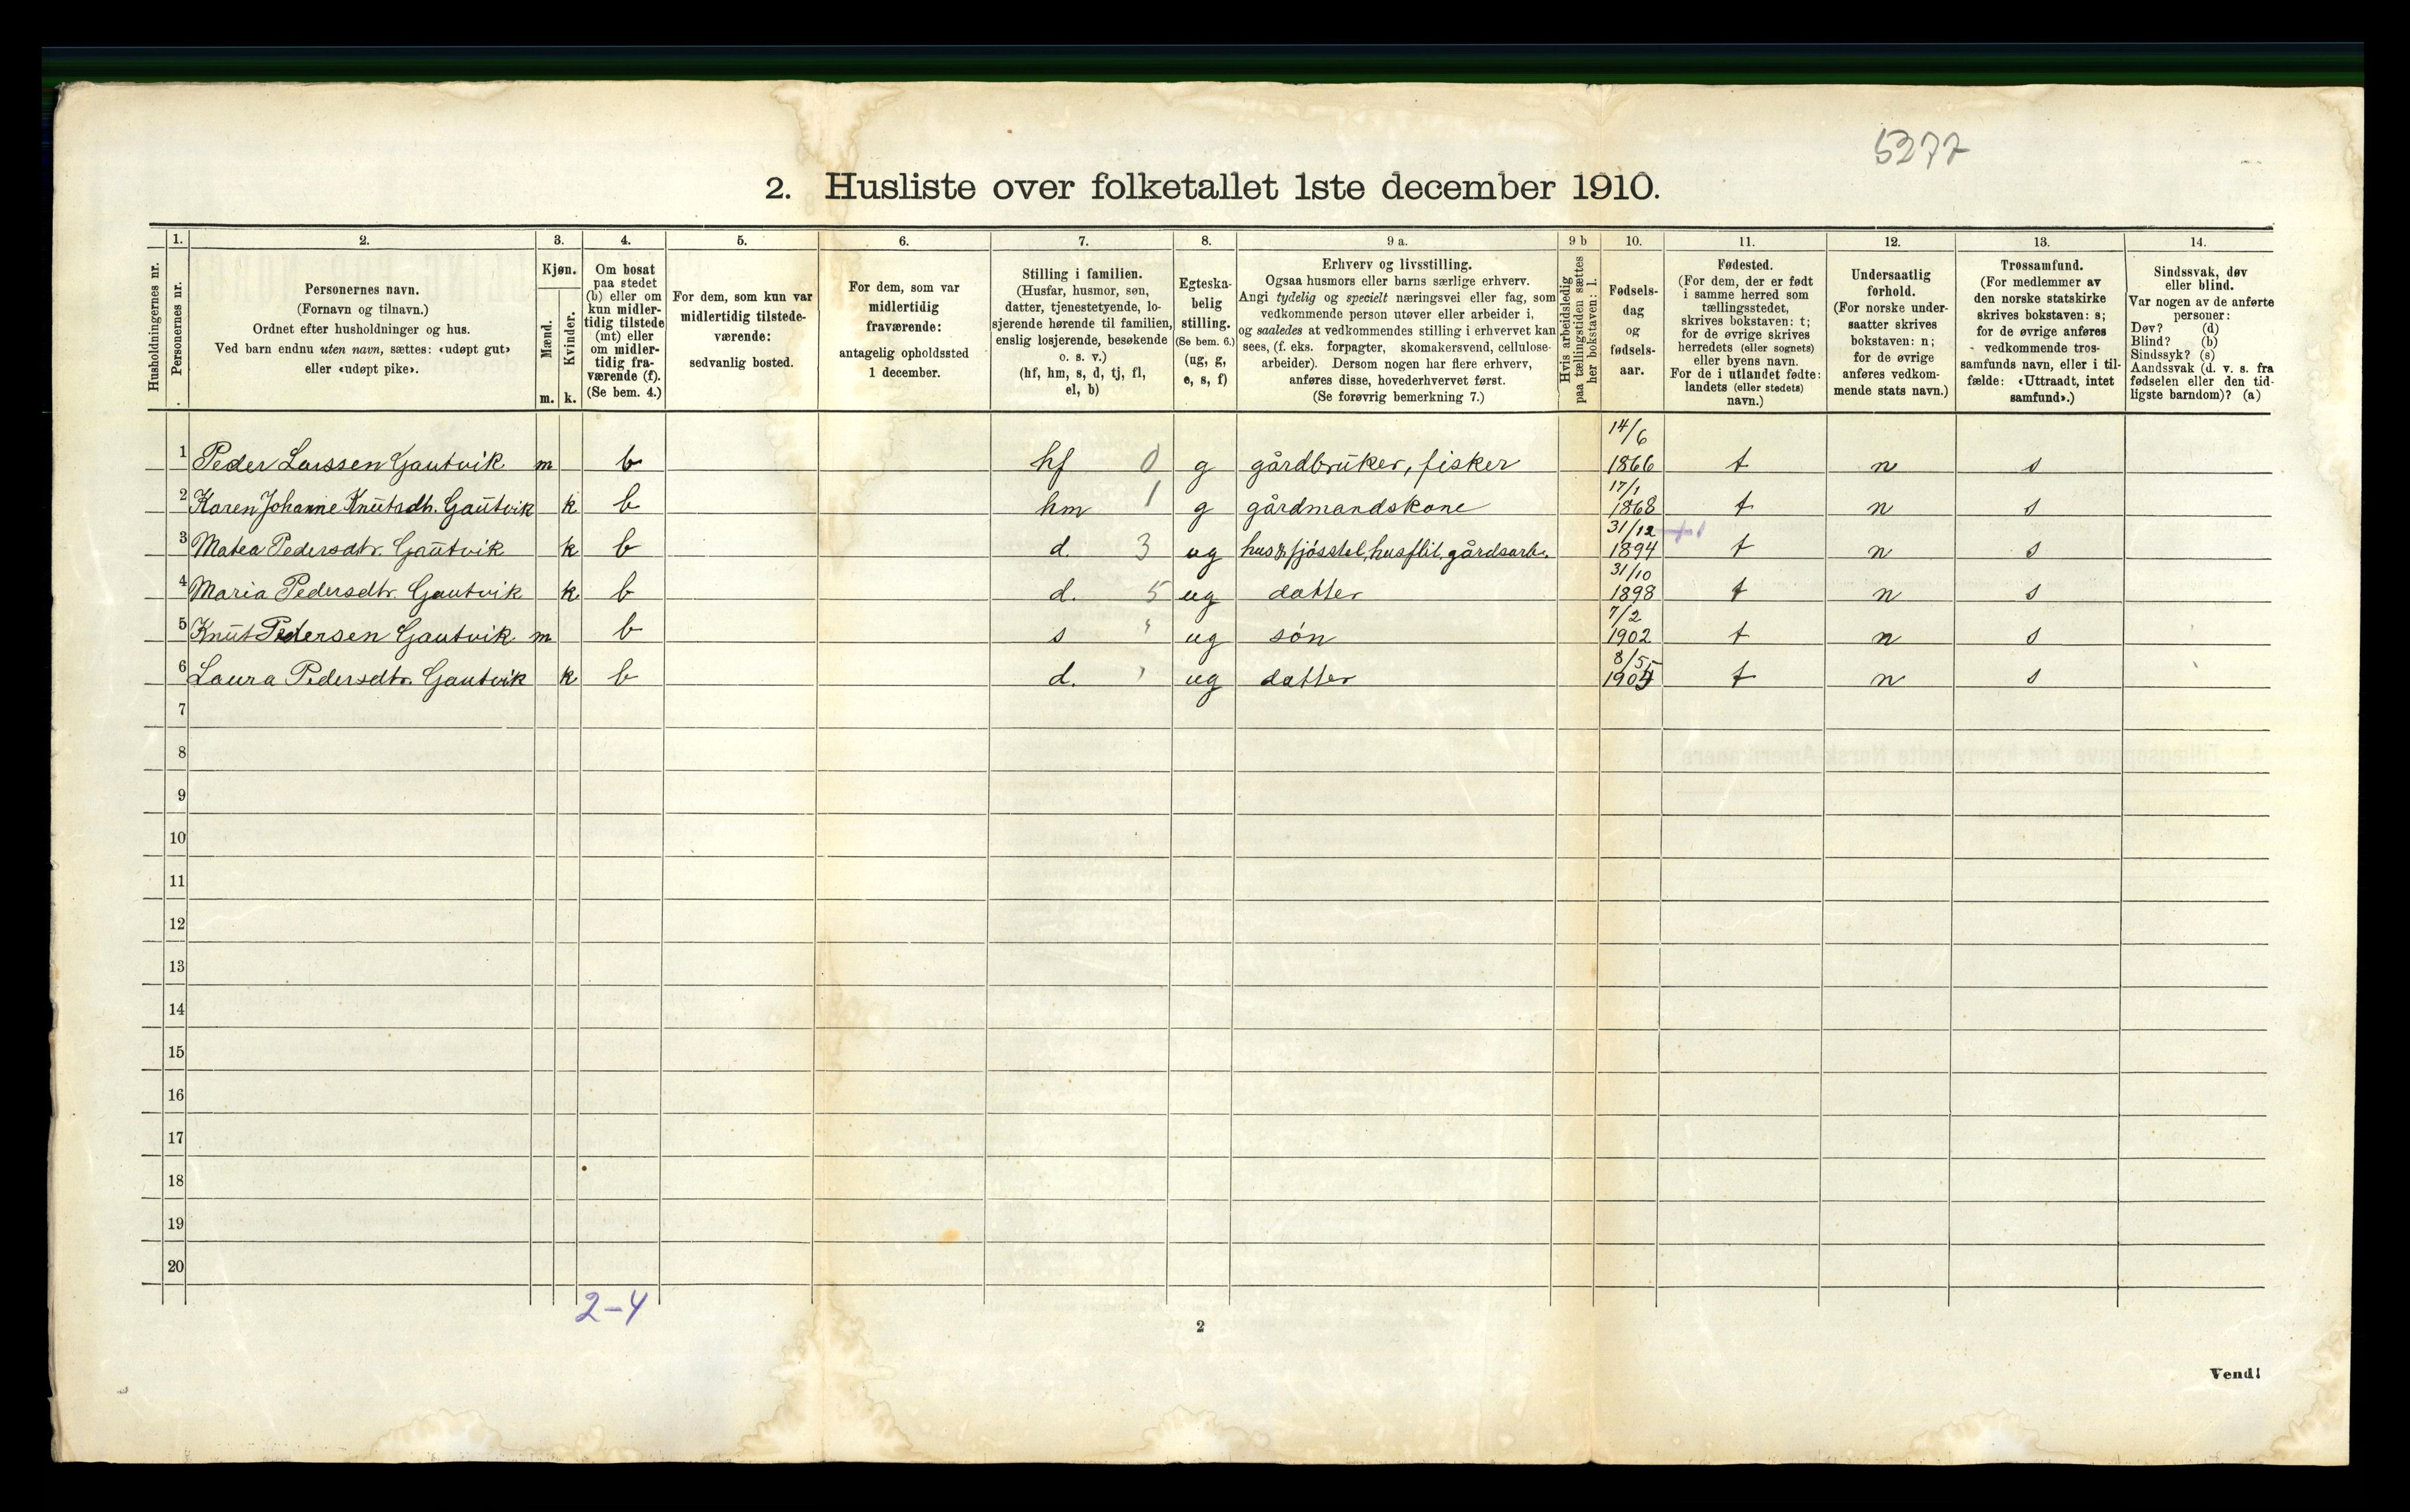 5277
2. Husliste over folketallet 1ste december 1910.
Husholdningernes nr.
1. Personernes nr.
2. Personernes navn.
(Fornavn og tilnavn.)
Ordnet efter husholdninger og hus.
Ved barn endnu uten navn, sættes: «udøpt gut»
eller «udøpt pike».
3. Kjøn.
Mænd. m.
Kvinder. k.
4. Om bosat
paa stedet
(b) eller om
kun midler-
tidig tilstede
(mt) eller
om midler-
tidig fra-
værende (f).
(Se bem. 4.)
5. For dem, som kun var
midlertidig tilstede-
værende:
sedvanlig bosted.
6. For dem, som var
midlertidig
fraværende:
antagelig opholdssted
1 december.
7. Stilling i familien.
(Husfar, husmor, søn,
datter, tjenestetyende, lo-
sjerende hørende til familien,
enslig losjerende, besøkende
o. s. v.)
(hf, hm, s, d, tj, fl,
el, b)
8. Egteska-
belig
stilling.
(Se bem. 6.)
(ug, g,
e, s, f)
9 a. Erhverv og livsstilling.
Ogsaa husmors eller barns særlige erhverv.
Angi tydelig og specielt næringsvei eller fag, som
vedkommende person utøver eller arbeider i,
og saaledes at vedkommendes stilling i erhvervet kan
sees, (f. eks. forpagter, skomakersvend, cellulose-
arbeider). Dersom nogen har flere erhverv,
anføres disse, hovederhvervet først.
(Se forøvrig bemerkning 7.)
9 b Hvis arbeidsledig
paa tællingstiden sættes
her bokstaven: l.
10. Fødsels-
dag
og
fødsels-
aar.
11. Fødested.
(For dem, der er født
i samme herred som
tællingsstedet,
skrives bokstaven: t;
for de øvrige skrives
herredets (eller sognets)
eller byens navn.
For de i utlandet fødte:
landets (eller stedets)
navn.)
12. Undersaatlig
forhold.
(For norske under-
saatter skrives
bokstaven: n;
for de øvrige
anføres vedkom-
mende stats navn.)
13. Trossamfund.
(For medlemmer av
den norske statskirke
skrives bokstaven: s;
for de øvrige anføres
vedkommende tros-
samfunds navn, eller i til-
fælde: «Uttraadt, intet
samfund».)
14. Sindssvak, døv
eller blind.
Var nogen av de anførte
personer:
Døv? (d)
Blind? (b)
Sindssyk? (s)
Aandssvak (d. v. s. fra
fødselen eller den tid-
ligste barndom)? (a)
1 Peder Larssen Gautvik m b hf 0 g gårdbruker, fisker 14/6 1866 t n s
2 Karen Johanne Knutsdtr. Gautvik k b hm 1 g gårdmandskone 17/1 1868 t n s
3 Matea Pedersdtr. Gautvik k b d. 3 ug hus & fjósstel, husflit, gårdsarb. 31/12 1894 t n s
4 Maria Pedersdtr. Gautvik k b d. 5 ug datter 31/10 1898 t n s
5 Knut Pedersen Gautvik m b s " ug søn 7/2 1902 t n s
6 Laura Pedersdtr. Gautvik k b d. ug datter 8/5 t n s
7
8
9
10
11
12
13
14
15
16
17
18
19
20
2-4
2
Vend!